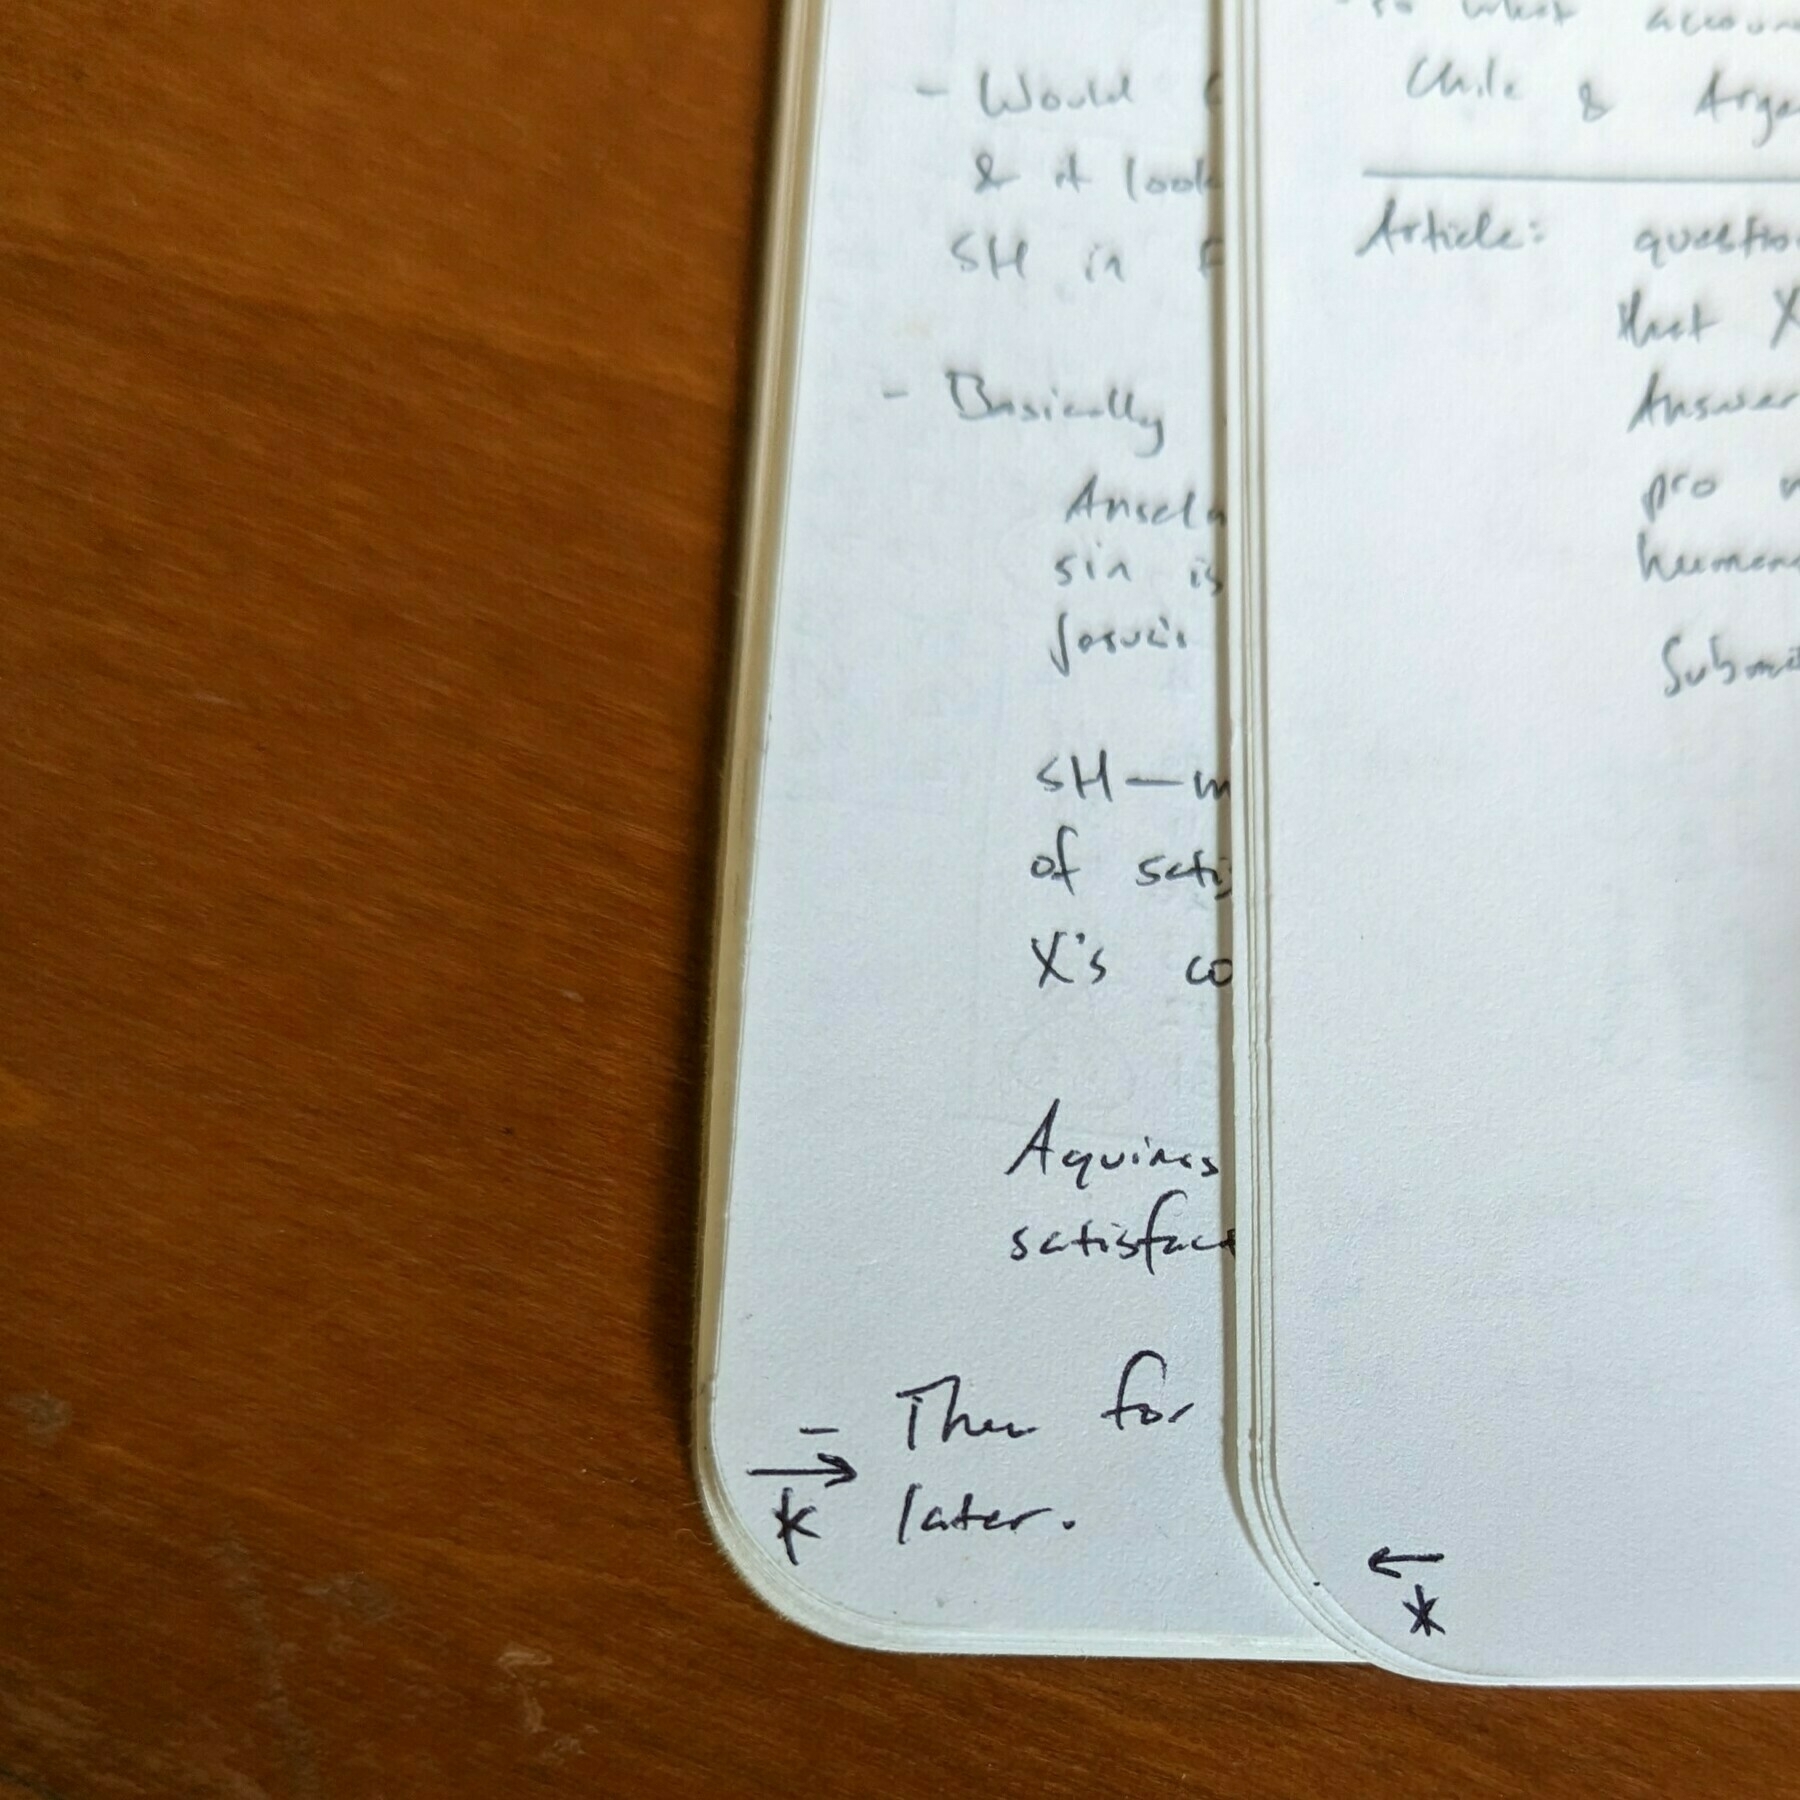 - Would
& it look
SH in
- Basically
Anselm
sin is
SH — m
of satis
X's co
Aquinas
satisfact
- Then for
→
* later.
so what accoun
Chile & Arge
Article: questio
that X
Answer
pro
humana
Submi
←
*